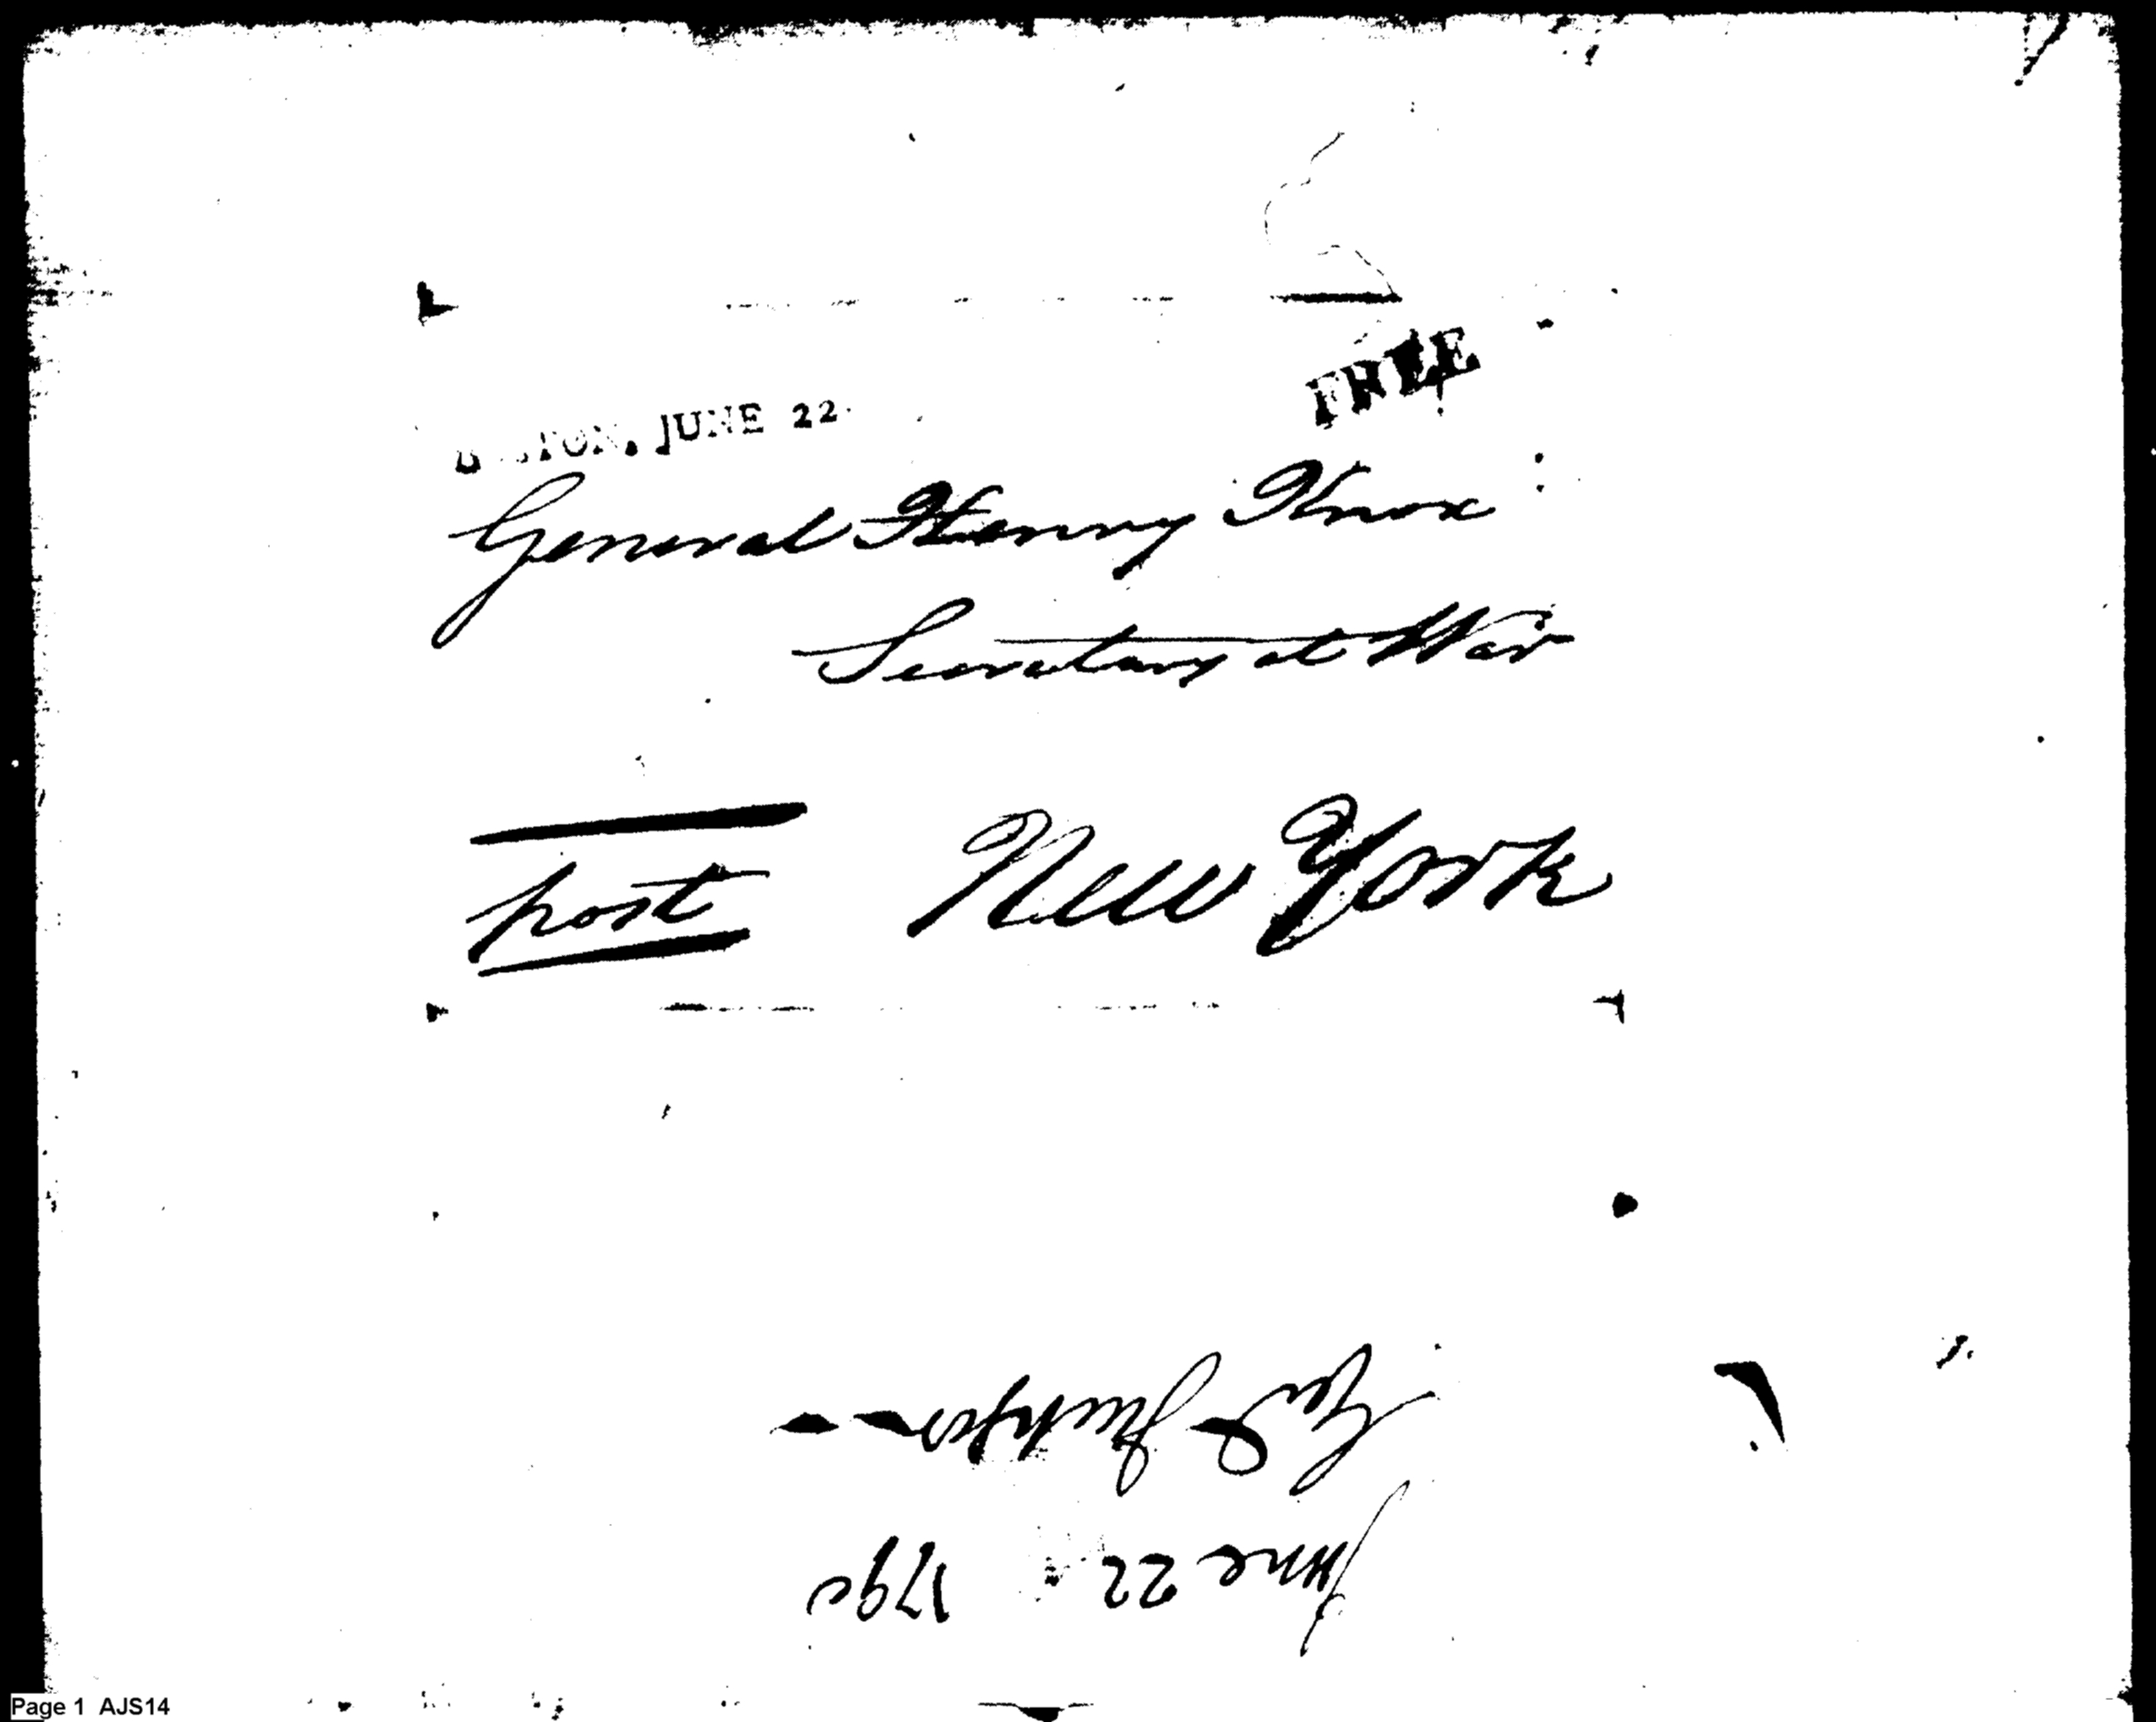 FREE
BOSTON, JUNE 22.
General Henry Knox
Secretary at War
post New York
June 22 1790
Page 1 AJS14